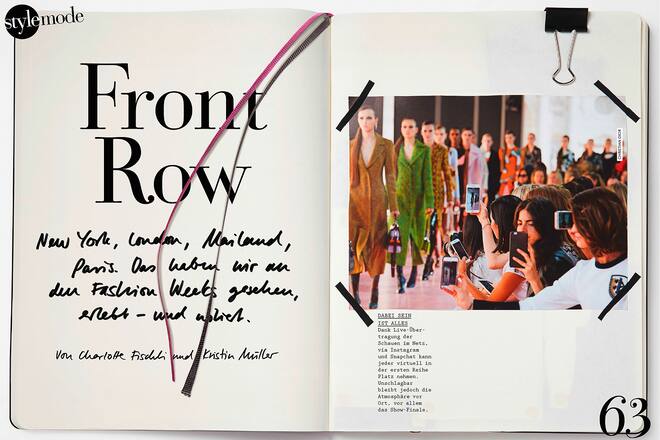 stylemode
Front
Row
New York, London, Mailand,
Paris. Das haben wir an
den Fashion Weeks gesehen,
erlebt – und notiert.
Von Charlotte Fischli und Kristin Müller
CHRISTIAN DIOR
DABEI SEIN
IST ALLES
Dank Live-Über-
tragung der
Schauen im Netz,
via Instagram
und Snapchat kann
jeder virtuell in
der ersten Reihe
Platz nehmen.
Unschlagbar
bleibt jedoch die
Atmosphäre vor
Ort, vor allem
das Show-Finale.
63